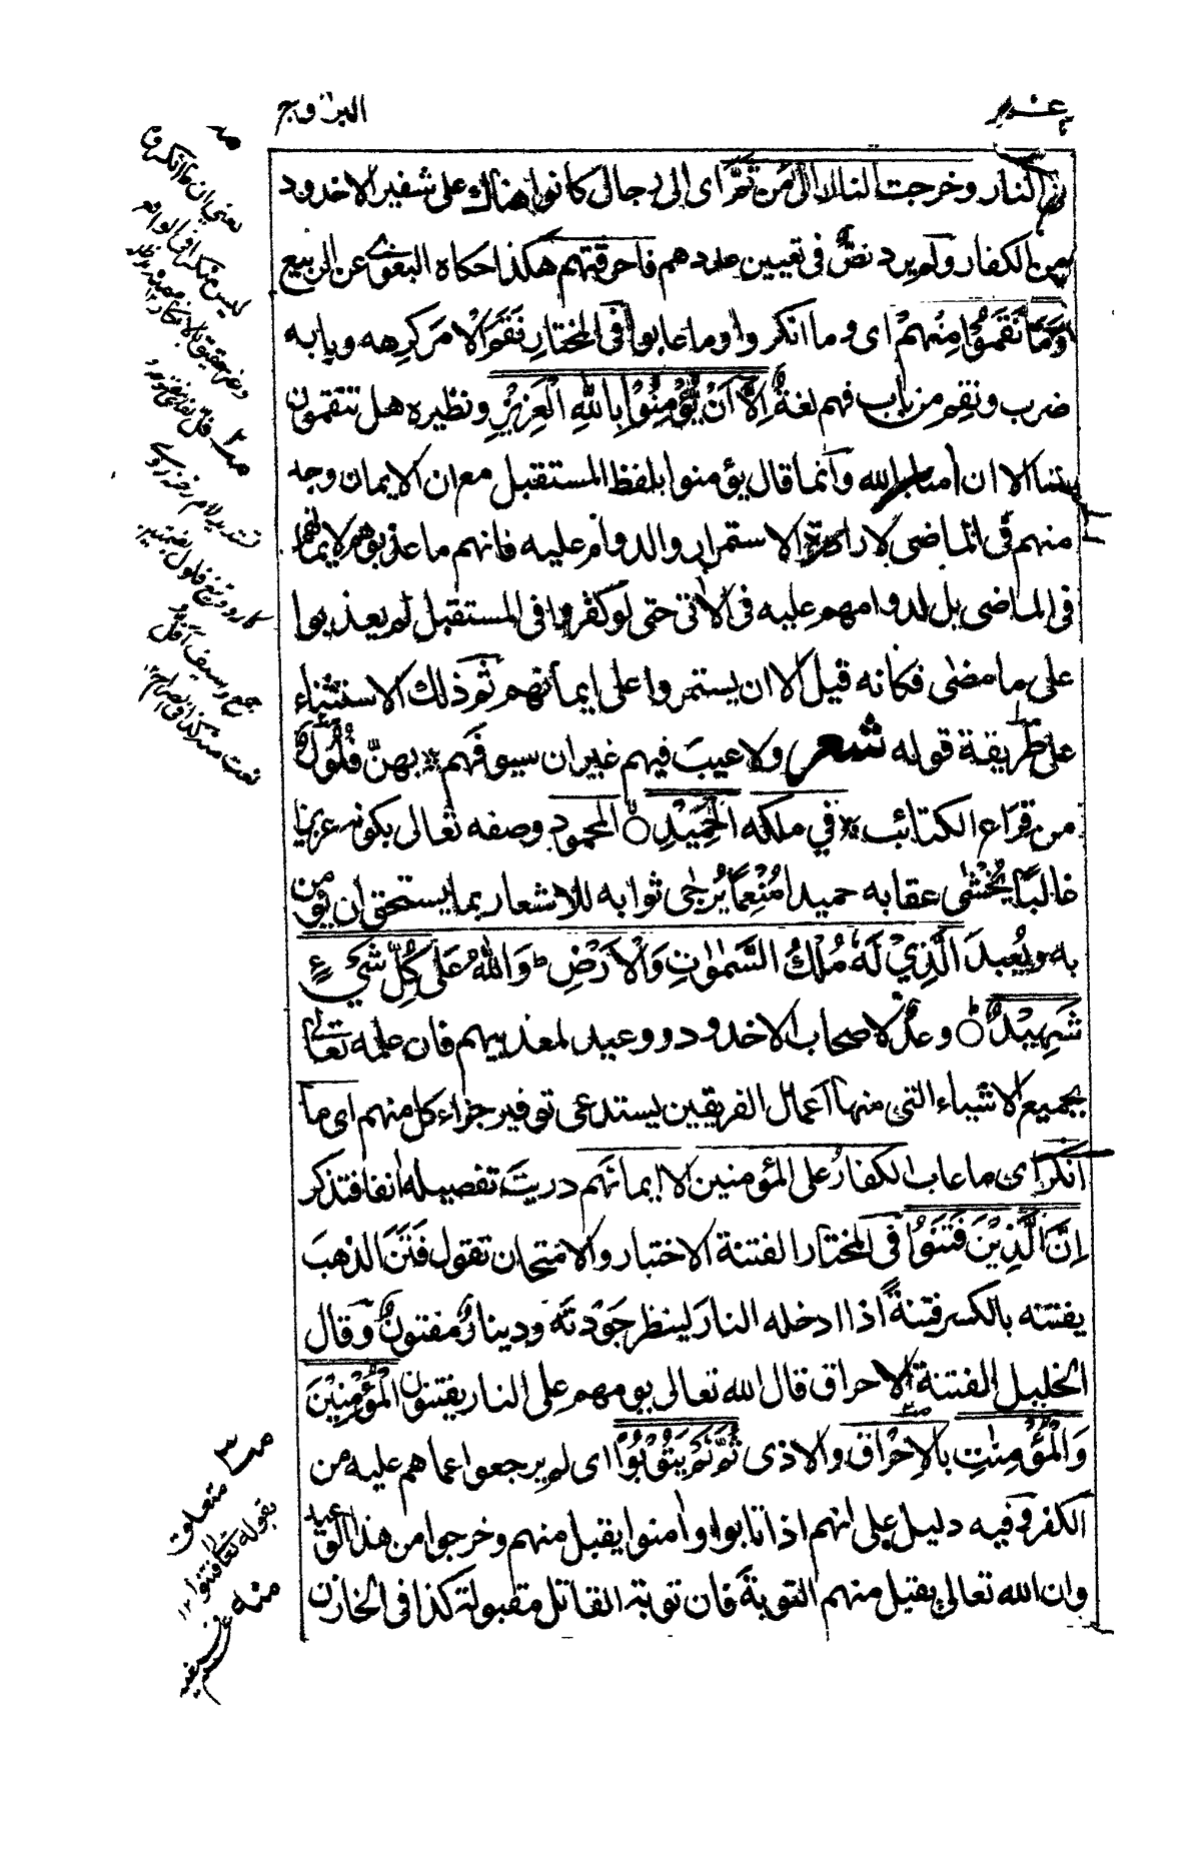 عم
البروج
في النار وخرجت النار الى من ثَمَّ اى الى رجال كانوا هناك على شفير الاخدود
من الكفار ولم يرد نصٌّ فى تعيين عددهم فاحرقتهم هكذا حكاه البغوى عن الربيع
وَمَا نَقَمُوْا مِنْهُمْ اى وما انكروا وما عابوا فى المختارِ نَقَمَ الامرَ كرِهه وبابه
ضرب ونقِم من باب فهم لغةٌ اِلَّا اَنْ يُّؤْمِنُوْا بِاللّٰهِ الْعَزِيْزِ ونظيره هل تنقمون
منا الا ان اٰمنا بالله وانما قال يؤمنوا بلفظ المستقبل مع ان الايمان وجد
منهم فى الماضى لارادة الاستمرار والدوام عليه فانهم ما عذبوهم لايمانهم
فى الماضى بل لدوامهم عليه فى الاٰتى حتى لو كفروا فى المستقبل لم يعذبوا
على ما مضٰى فكانه قيل الا ان يستمروا على ايمانهم ثم ذلك الاستثناء
على طريقة قوله شعر ولا عيبَ فيهم غير ان سيوفَهم * بهنّ فُلُوْلٌ
من قِرَاعِ الكتائب * في ملكه الْحَمِيْدِ ۝ المحمود وصفه تعالى بكونه عزيزا
غالبًا يُخْشٰى عقابه حميدا مُنْعِمًا يُرجٰى ثوابه للاشعار بما يستحق ان يؤمن
به ويُعبدَ الَّذِيْ لَهٗ مُلْكُ السَّمٰوٰتِ وَالْاَرْضِ ؕ وَاللّٰهُ عَلٰى كُلِّ شَيْءٍ
شَهِيْدٌ ۝ وعدٌ لاصحاب الاخدود ووعيد لمعذبيهم فان علمه تعالى
بجميع الاشياء التى منها اعمال الفريقين يستدعى توفير جزاء كل منهم اى ما
انكر اى ما عاب الكفارُ على المؤمنين الا ايمانَهم دريتَ تفصيله اٰنفا فتذكر
اِنَّ الَّذِيْنَ فَتَنُوْا فى المختار الفتنة الاختبار والامتحان تقول فَتَنَ الذهبَ
يفتنه بالكسر فتنةً اذا ادخله النارَ لينظر جَوْدتَه ودينارٌ مفتونٌ وقال
الخليل الفتنة الاحراق قال الله تعالى يوم هم على النار يفتنون الْمُؤْمِنِيْنَ
وَالْمُؤْمِنٰتِ بالاحراق والاذى ثُمَّ لَمْ يَتُوْبُوْا اى لم يرجعوا عما هم عليه من
الكفر وفيه دليل على انهم اذا تابوا واٰمنوا يقبل منهم وخرجوا من هذا الوعيد
وان الله تعالى يقبل منهم التوبة فان توبة القاتل مقبولة كذا فى الخازن
متعلق
بقوله تعالى فتنوا ١٢
منه